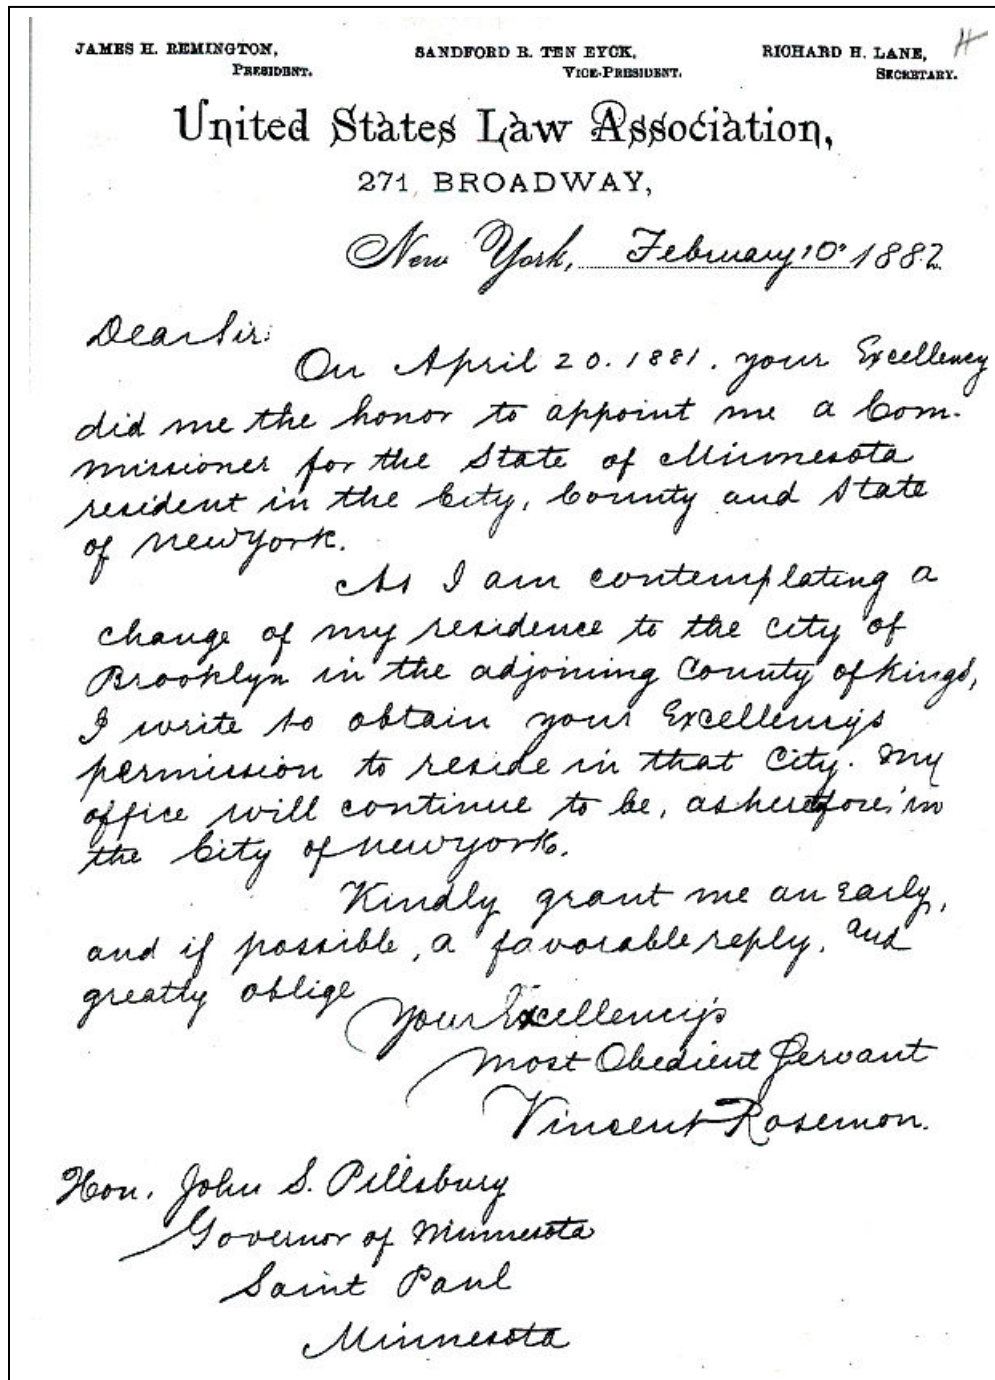 JAMES H. REMINGTON, SANDFORD R. TEN EYCK, RICHARD H. LANE,
PRESIDENT. VICE-PRESIDENT. SECRETARY.
United States Law Association,
271 BROADWAY,
New York, February 10. 1882
Dear Sir:
On April 20. 1881. your Excellency
did me the honor to appoint me a Com-
missioner for the State of Minnesota
resident in the City, County and State
of New York.
As I am contemplating a
change of my residence to the city of
Brooklyn in the adjoining County of Kings,
I write to obtain your Excellency's
permission to reside in that City. My
office will continue to be, as heretofore, in
the City of New York.
Kindly grant me an early,
and if possible, a favorable reply, and
greatly oblige
Your Excellency's
Most Obedient Servant
Vincent Rosemon.
Hon. John S. Pillsbury
Governor of Minnesota
Saint Paul
Minnesota